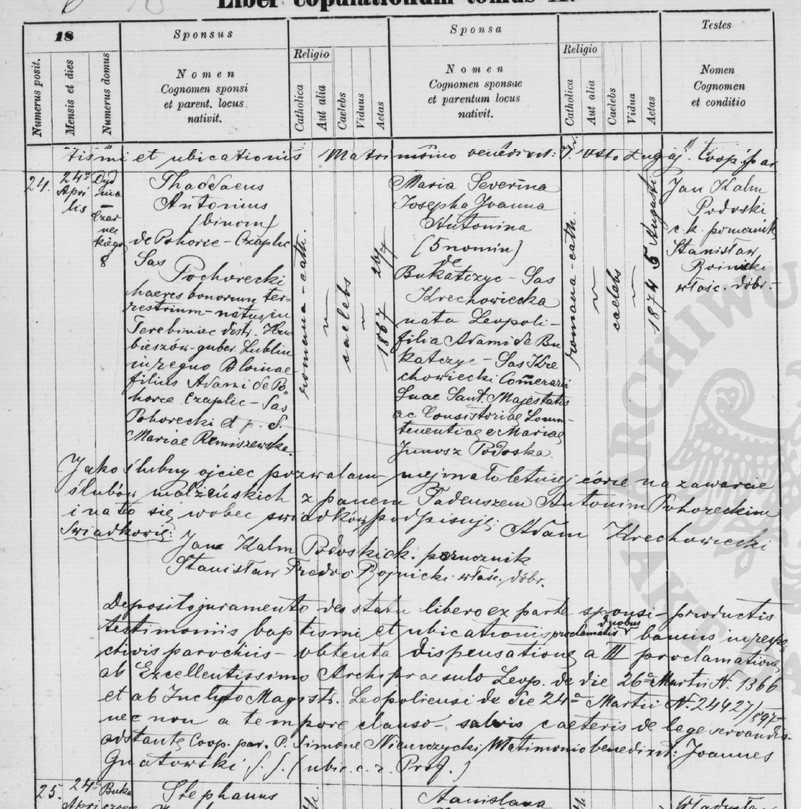 Liber copulationum tomus II.
18
Sponsus
Sponsa
Testes
Numerus posit.
Mensis et dies
Numerus domus
Nomen
Cognomen sponsi
et parent. locus
nativit.
Religio
Catholica
Aut alia
Caelebs
Viduus
Aetas
Nomen
Cognomen sponsae
et parentum locus
nativit.
Religio
Catholica
Aut alia
Caelebs
Vidua
Aetas
Nomen
Cognomen
et conditio
tismi et ubicationis Matrimonio benedixit: Coop. par.
24.
24ª
Apri
lis
Czar
nec
kiego
8
Thaddaeus
Antonius
(binom)
de Pohorce Czaplic
Sas
Pochorecki
haeres bonorum ter
restrium - natus in
Terebiniec distr. Hru
bieszów - guber. Lublin
in regno Poloniae
filius Adami de Po
horce Czaplic - Sas
Pohorecki et
Mariae Remiszewska
romana - cath.
caelebs
1867
Maria Severina
Josepha Joanna
Antonina
(5 nomin)
de
Bukatczyc - Sas
Krechowiecka
nata Leopoli -
filia Adami de Bu
katczyc - Sas Kre
chowiecki
Suae Majestatis
ac
e Mariae
Junosz Podoska
romana - cath.
caelebs
1874 5 Augusti
Jan Kalm
Podoski
c. k. porucznik
Stanisław
Rojnicki
właśc. dóbr. -
Jako ślubny ojciec pozwalam mej małoletniej córce na zawarcie
ślubów małżeńskich z panem Tadeuszem Antonim Pohoreckim
i na to się wobec świadków podpisuję: Adam Krechowiecki
Świadkowie:
Jan Kalm Podoski c. k. porucznik
Stanisław Fredro Rojnicki właśc. dóbr.
Deposito juramento de statu libero ex parte sponsi - productis
testimoniis baptismi et ubicationis proclamatis duobus bannis in respe
ctivis parochiis - obtenta dispensatione a III proclamatione
ab Excellentissimo Archipraesule Leop. de die 26ª Martii N. 1366
et ab Inclyto Magistr. Leopoliensi de die 24ª Martii N. 24427/897
nec non a tempore clauso salvis caeteris de lege servandis
adstante Coop. par. P. Simone Niemczycki Matrimonio benedixit: Joannes
Gnatowski
25.
24ª
Apri
Stephanus
Stanislava